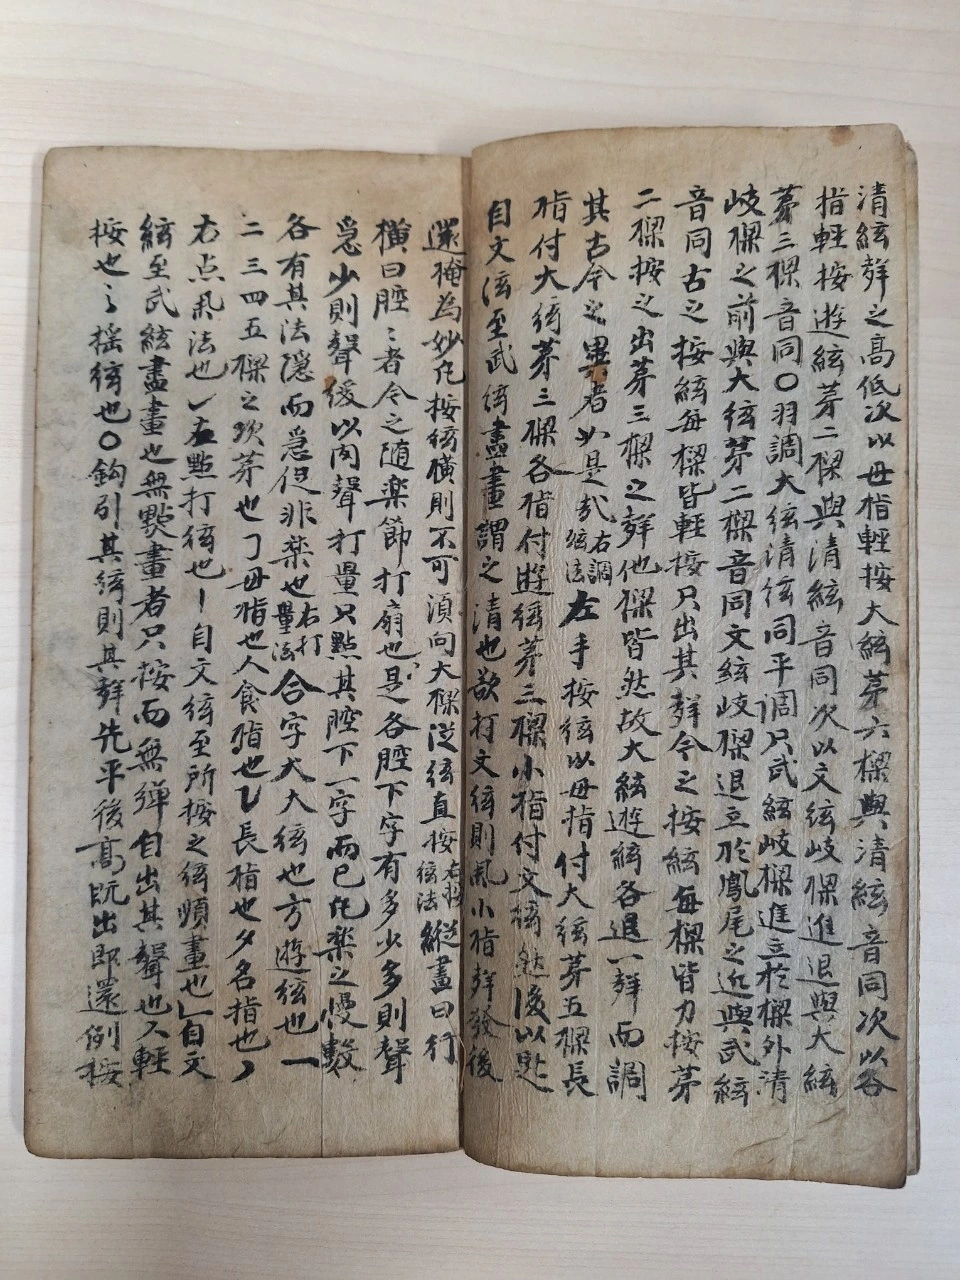 清絃聲之高低次以母指輕按大絃茅六樑與清絃音同次以各
指輕按遊絃茅二樑與清絃音同次以文絃岐樑進退與大絃
茅三樑音同〇羽調大絃清絃同平调只武絃岐樑進立於樑外清
岐樑之前與大絃茅二樑音同文絃岐樑退立於鳳尾之近與武絃
音同古之按絃每樑皆輕按只出其聲今之按絃每樑皆力按茅
二樑按之出茅三樑之聲他樑皆然故大絃遊絃各退一聲而調
其古今之異者如是哉右調絃法左手按絃以母指付大絃茅五樑長
指付大絃茅三樑各指付遊絃茅三樑小指付文絃然後以匙
自文絃至武絃盡畫謂之清也欲打文絃則小指聲發後
還掩為妙凡按絃橫則不可須向大樑從絃直按絃法縱畫曰行
橫曰腔〻者今之随楽節打扇也是各腔下字有多少多則聲
急少則聲緩以肉聲打量只點其腔下一字而已凡楽之慢數
各有其法隱而急促非楽也右打量法合字大大絃也方遊絃也一
二三四五樑之次茅也㇆母指也人食指也乚長指也夕名指也丶
右点法也左點打絃也丨自文絃至所按之絃順畫也」自文
絃至武絃盡畫也無點畫者只按而無彈自出其聲也入輕
按也〻搖絃也〇鈎引其絃則其聲先平後高旣出即還例按